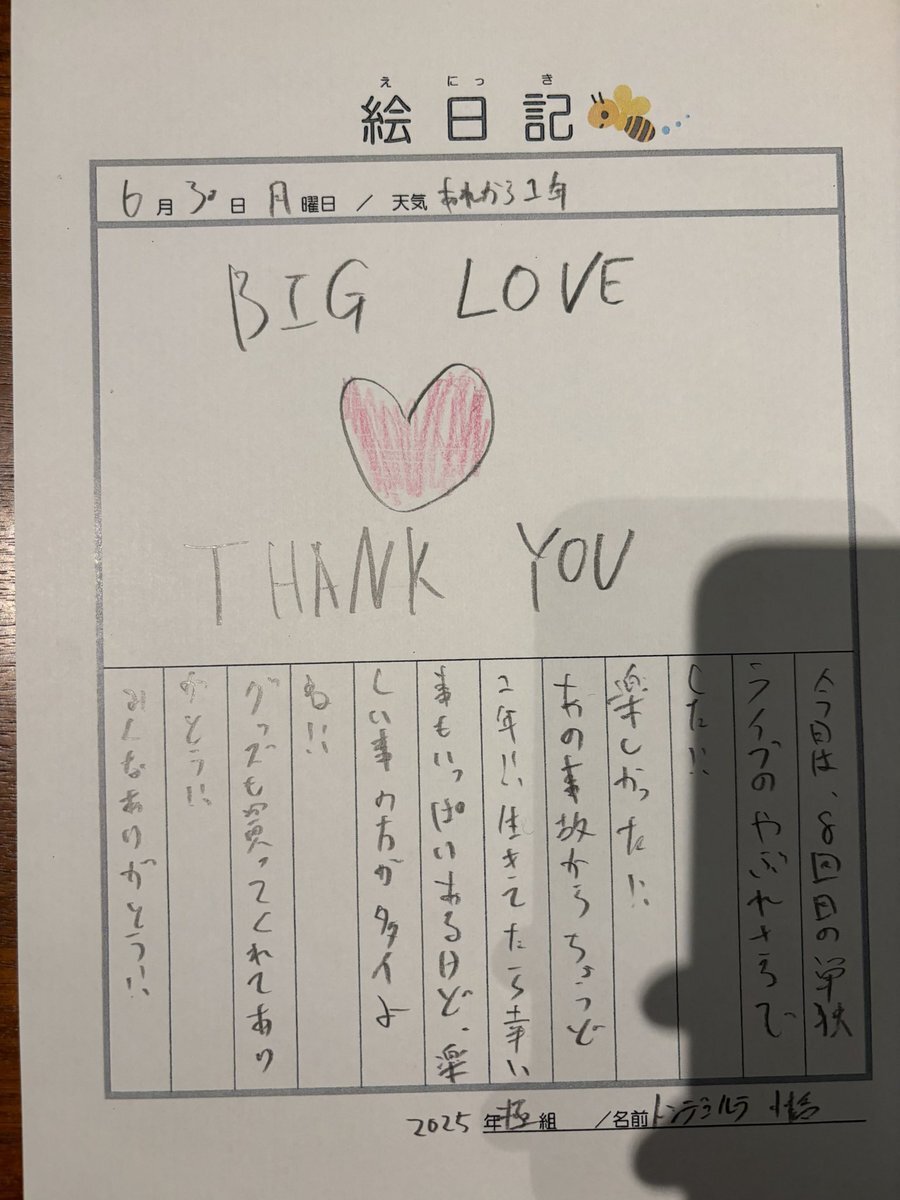 え にっ き
絵日記
6月30日月曜日 / 天気 あれから1年
BIG LOVE
THANK YOU
今日は、8回目の単独
ライブのやぶれさらで
した!!
楽しかった!!
あの事故からちょうど
1年!!生きてたら辛い
事もいっぱいあるけど、楽
しい事の方がタタイよ
ね!!
グッズも買ってくれてあり
がとう!!
みんなありがとう!!
2025年極組 /名前